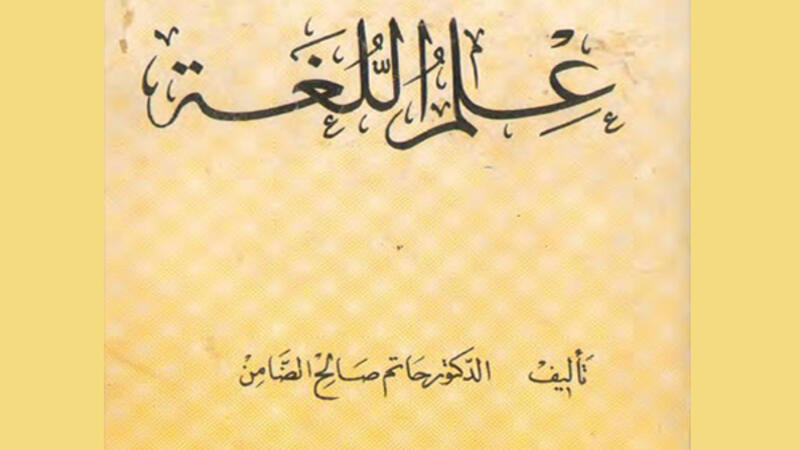 عِلمُ اللُّغَة
تَأليفْ الدّكتور حَاتم صَالح الضَّامِنْ